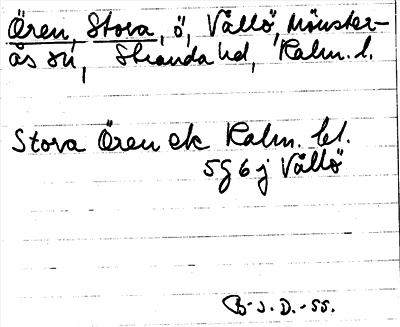 Ören, Stora, ö, Vållö, Mönster-
ås sn, Stranda hd, Kalm. l.
Stora Ören ek Kalm. bl.
5G6j Vållö
B-J.D.-55.